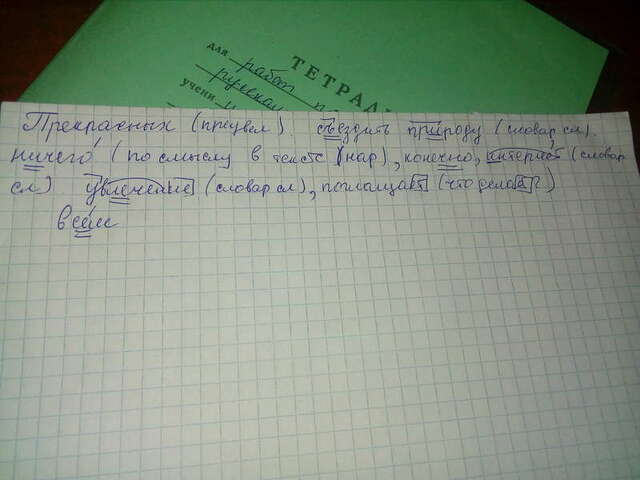 ТЕТРАД
для работ п
русском
учени
Прекрасных (прецвел) съездить природу (словар сл).
ничего (по смыслу в тексте (нар), конечно, интернет (словар
сл) увлечение (словар сл), поглощает (что делает?)
всём